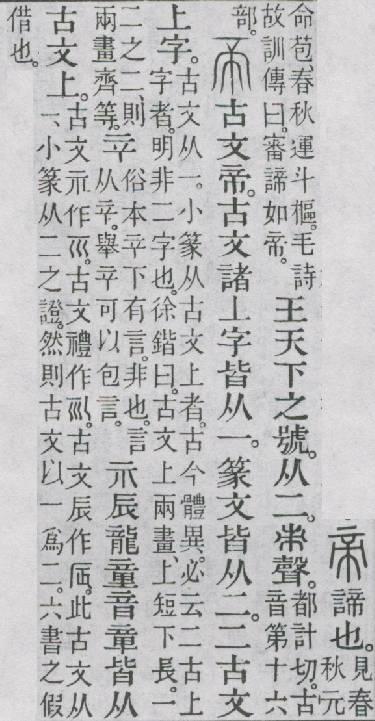 帝諦也。見春
秋元
命苞、春秋運斗樞。毛詩
故訓傳曰。審諦如帝。
王天下之號。从二。朿聲。
都計切。古
音第十六
部。
𢂇古文帝。古文諸上字皆从一。篆文皆从二。二古文
上字。
古文从一。小篆从古文上者。古今體異。必云二古上
字者。明非二字也。徐鍇曰。古文上兩畫、上短下長。一
二之二、則
兩畫齊等。
䇂
俗本䇂下有言。非也。言
从䇂。舉䇂可以包言。
示辰龍童音章皆从
古文上。
古文示作𥘆。古文禮作𠃞。古文辰作𠨷。此古文从
一、小篆从二之證。然則古文以一爲二。六書之假
借也。